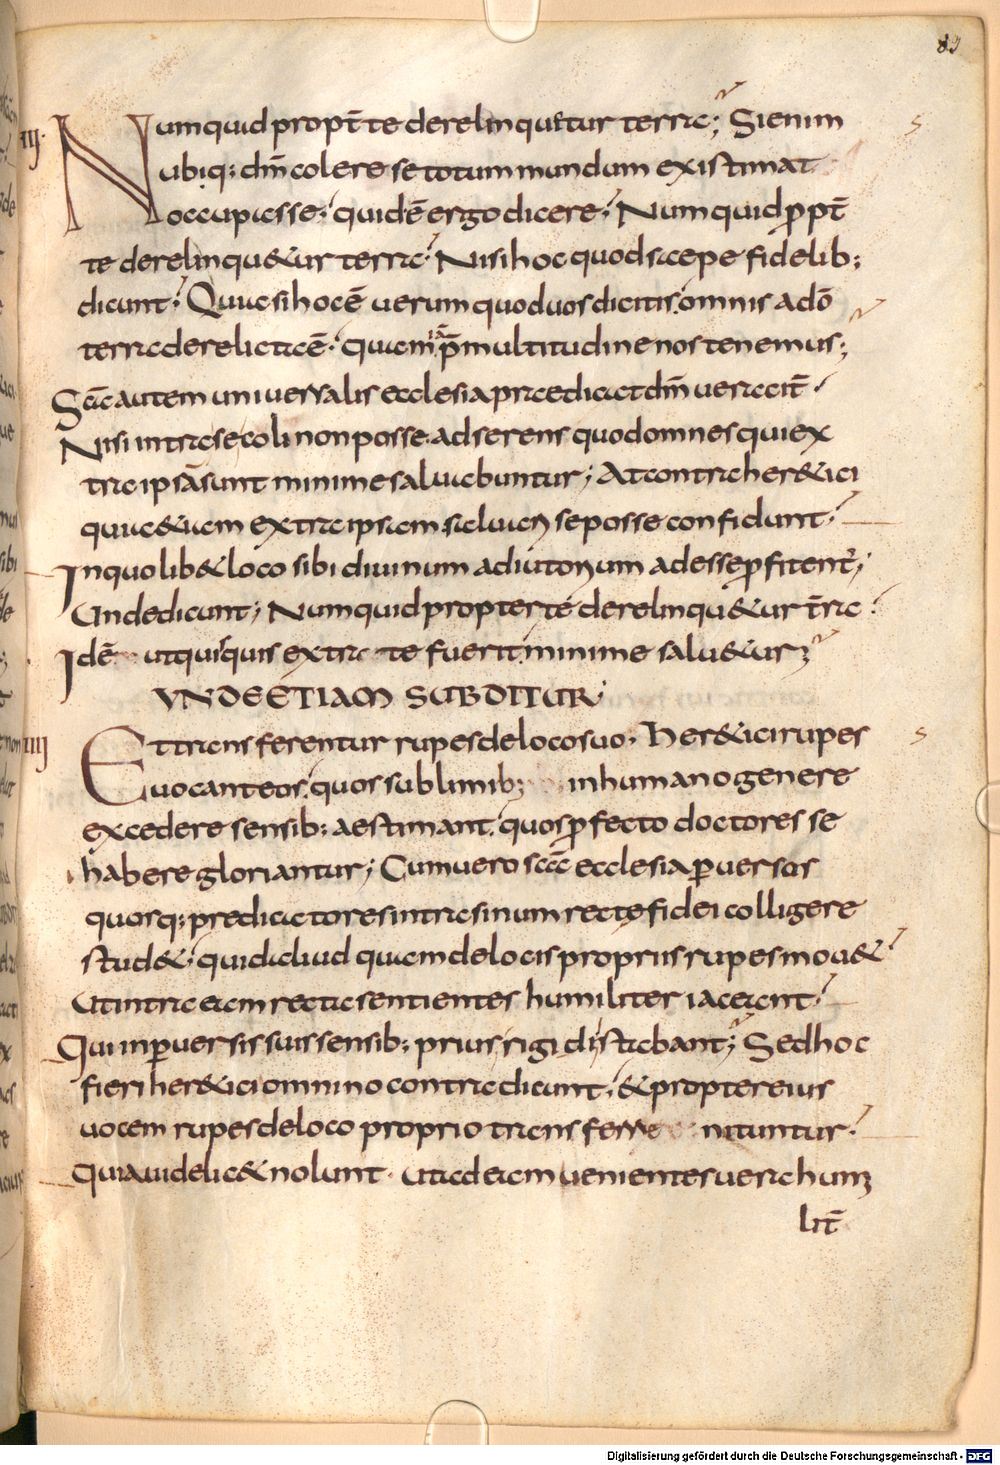 89
III· Numquid propt̄ te derelinquetur terra; Si enim
ubiq; dn̄m colere se totum mundum existimat
occupasse; quid ē ergo dicere; Numquid ꝓpt̄
te derelinqu&ur terra; Nisi hoc quod saepe fidelib;
dicunt; Quia si hoc ē uerum quod uos dicitis. omnis a dō
terra derelicta ē. quam p̄ multitudine nos tenemus;
Sc̄a autem uniuersalis ecclesia praedicat dn̄m ueracit̄
Nisi intra se coli non posse. adserens quod omnes qui extra
ipsā sunt minime saluabuntur; At contra her&ici
qui a&iam extra ipsam saluari se posse confidunt;
In quolib& loco sibi diuinum adiutorium adesse ꝓfitent̄;
Unde dicunt; Numquid propter te derelinqu&ur t̄ra;
Idē utquisquis extra te fuerit. minime salu&ur;
VNDE ETIAM SUBDITUR;
IIII Et transferentur rupes de loco suo. Her&ici rupes
uocant eos. quos sublimib; in humano genere
excedere sensib; aestimant. quos ꝓfecto doctores se
habere gloriantur; Cum uero sc̄a ecclesia ꝑuersos
quosq; predicatores intra sinum rectę fidei colligere
stud&. quid aliud quam de locis propriis rupes mou&;
Ut intra eam recta sentientes humiliter iaceant;
Qui in ꝑuersis suis sensib; prius rigidi stabant; Sed hoc
fieri her&ici omnino contradicunt. & propter eius
uocem rupes de loco proprio transferre nituntur;
Quia uidelic& nolunt. ut ad eam uenientes uera humi
lit̄
Digitalisierung gefördert durch die Deutsche Forschungsgemeinschaft - DFG